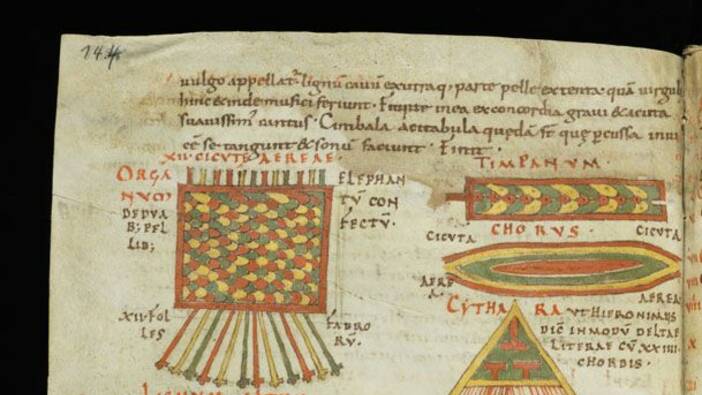 144
vulgo appellat̄ lignū cavū ex utraq; parte pelle extenta quā virgul
hinc & inde musici feriunt · Fitq; in ea ex concordia gravi & acuta
suavissim' cantus · Cimbala acitabula quędā st̄ quę percussa invi
cē se tangunt & sonū faciunt · Finit ·
XII · CICUTE AEREAE ·
ORGA
NUM
DE DUA
B; PEL
LIB;
ELEPHAN
TŪ CON
FECTŪ ·
XII FOL
LES
FABRO
RŪ ·
TIMPANUM ·
CHORUS ·
CICUTA
CICUTA
AERE
A ·
AEREA
CYTHARA
UT HIERONIMUS
DIC̄ IN MODŪ DELTAE
LITERAE CŪ XXIIII ·
CHORDIS ·